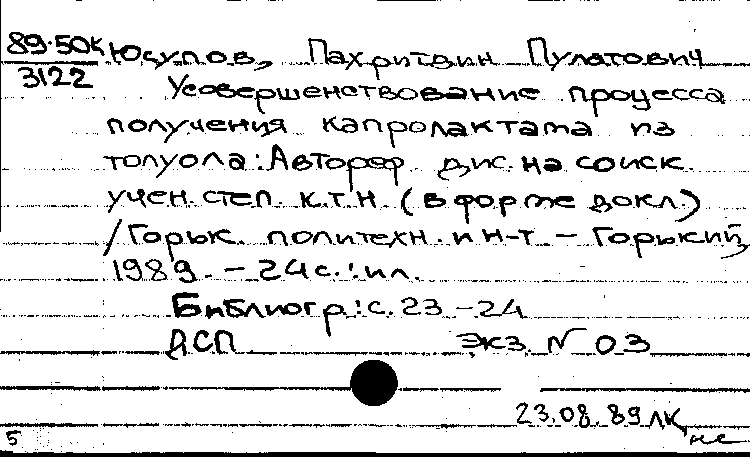 89-50к Юсупов, Пахритдин Пулатович
3122
Усовершенствование процесса
получения капролактама из
толуола: Автореф дис. на соиск.
учен. степ. к.т.н. (в форме докл.)
/Горьк. политехн. ин-т. - Горький,
1989. - 24 с. : ил.
Библиогр: с. 23-24
ДСП Экз. N 03
23.08.89 ЛК,
нс
5